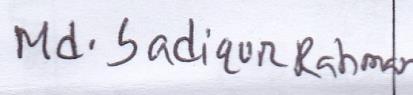 Md. Sadiqur Rahman